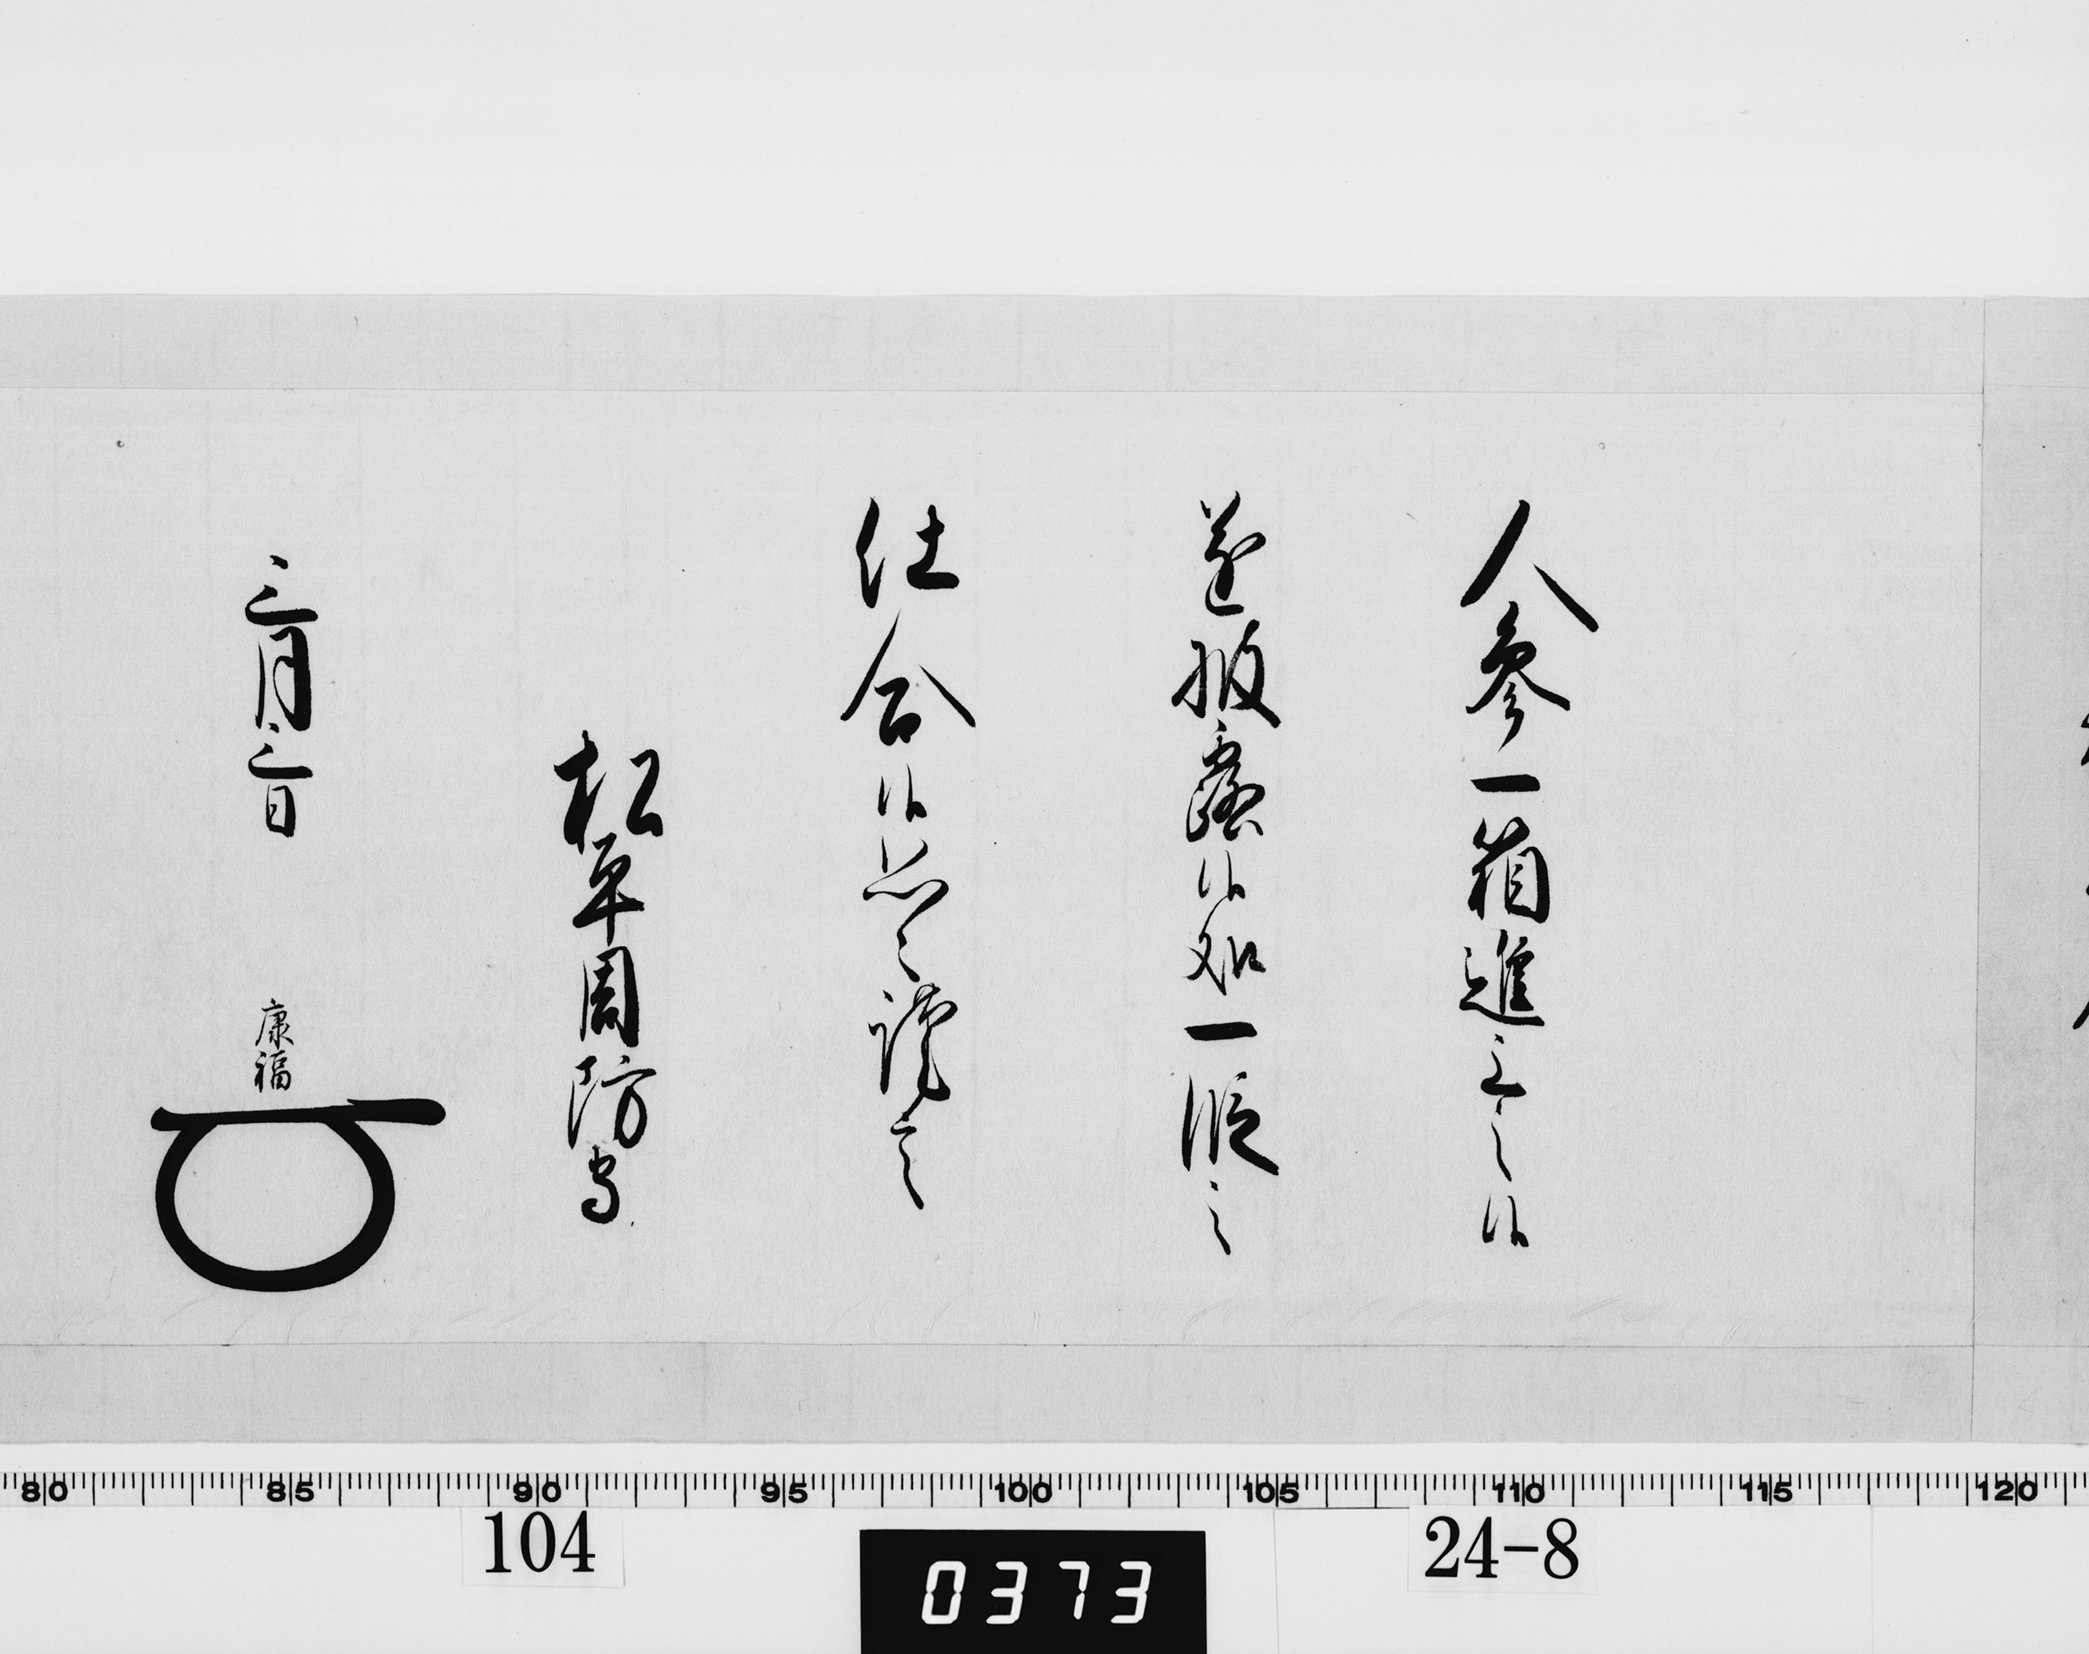 人参一箱進上之候
遂披露候処一段之
仕合候恐々謹言
松平周防守
三月三日 康福
80 85 90 95 100 105 110 115 120
104
24-8
0373